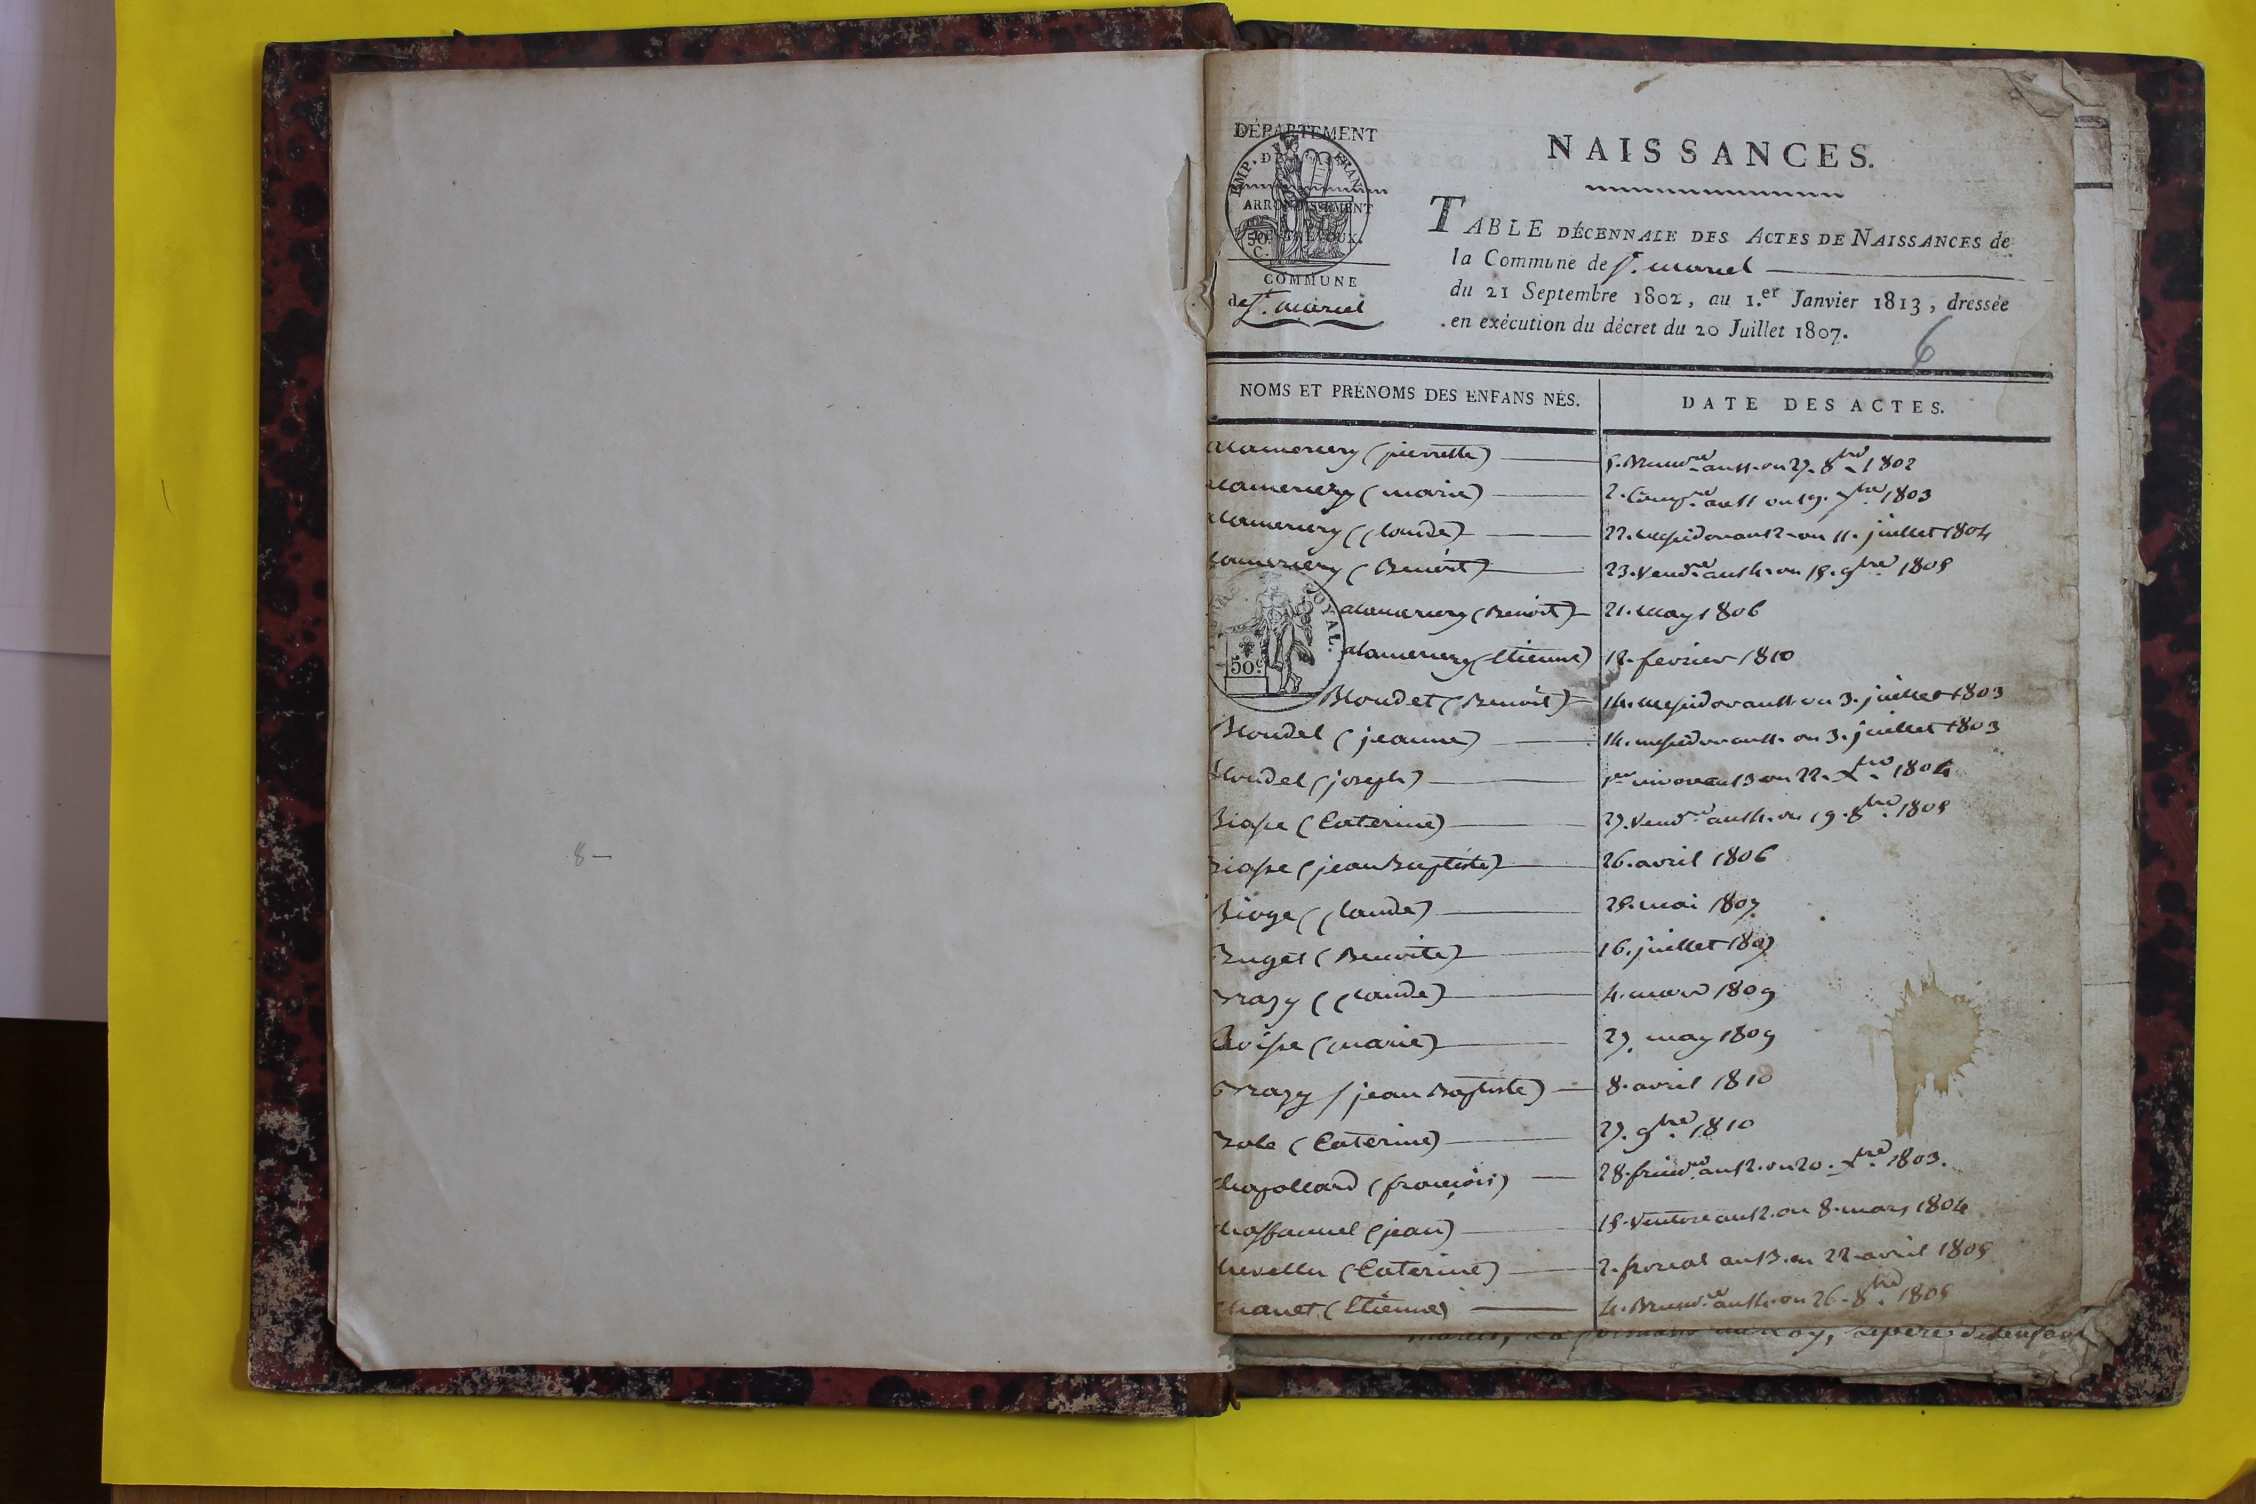 8—
DÉPARTEMENT
EMP. FRAN.
ARRONDISSEMENT
DE TRÉVOUX.
50 C.
COMMUNE
de St. marcel
NAISSANCES.
TABLE DÉCENNALE DES ACTES DE NAISSANCES de
la Commune de St. marcel
du 21 Septembre 1802, au 1.er Janvier 1813, dressée
en exécution du décret du 20 Juillet 1807.
6
NOMS ET PRÉNOMS DES ENFANS NÉS. DATE DES ACTES.
alamercery (pierrette) 5. Brumre an 11. ou 27. 8bre 1802
alamercery (marie) 2. Compre an 11 ou 19. 7bre 1803
alamercery (Claude) 22. messidor an 12 ou 11. juillet 1804
alamercery (Benoit) 23. Vendre an 14 ou 15. 9bre 1805
ROYAL.
50c
alamercery (Benoit) 21. may 1806
alamercery (Etienne) 18. fevrier 1810
Bloudet (Benoit) 14. messidor an 11 ou 3. juillet 1803
Bloudel (jeanne) 14. messidor an 11. ou 3. juillet 1803
Bloudel (joseph) 1er nivose an 13 ou 22. Xbre 1804
(Caterine) 27. Vendre an 14. ou 19. 8bre 1805
(jean Baptiste) 26. avril 1806
(Claude) 25. mai 1807
Buget (Benoite) 16. juillet 1807
(Claude) 4. mars 1809
(marie) 27. may 1809
(jean Baptiste) 8. avril 1810
(Caterine) 27. 9bre 1810
chapolland (françois) 28. frimre an 12. ou 20. Xbre 1803.
chaffannel (jean) 15. Ventose an 12. ou 8. mars 1804
(Caterine) 2. floreal an 13. ou 22 avril 1805
chanet (Etienne) 4. Brumre an 14. ou 26. 8bre 1805